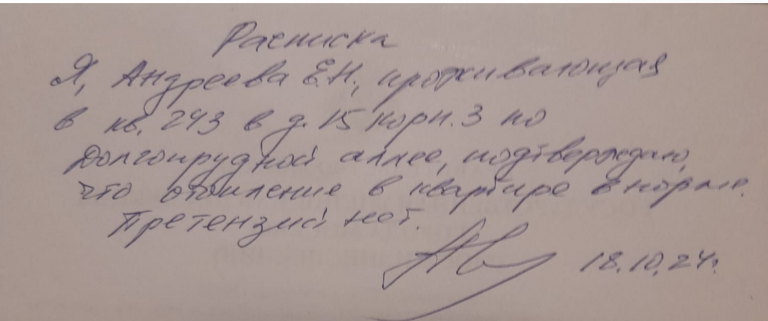 Расписка
Я, Андреева Е.Н., проживающая
в кв. 243 в д. 15 корп. 3 по
Долгопрудной аллее, подтверждаю,
что отопление в квартире в норме.
Претензий нет.
18.10.24г.